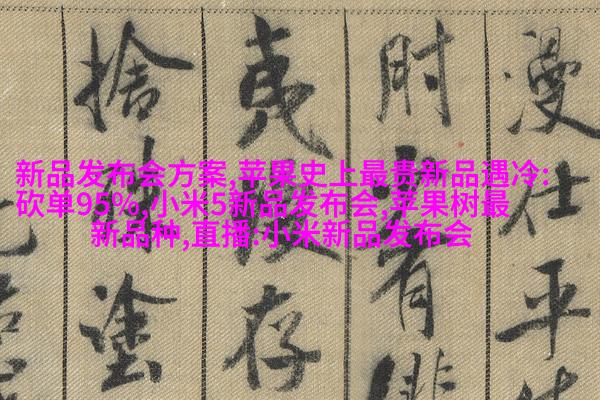 新品发布会方案,苹果史上最贵新品遇冷:
砍单95%,小米5新品发布会,苹果树最
新品种,直播:小米新品发布会
漫仕平
有
夷險存
捨 塗